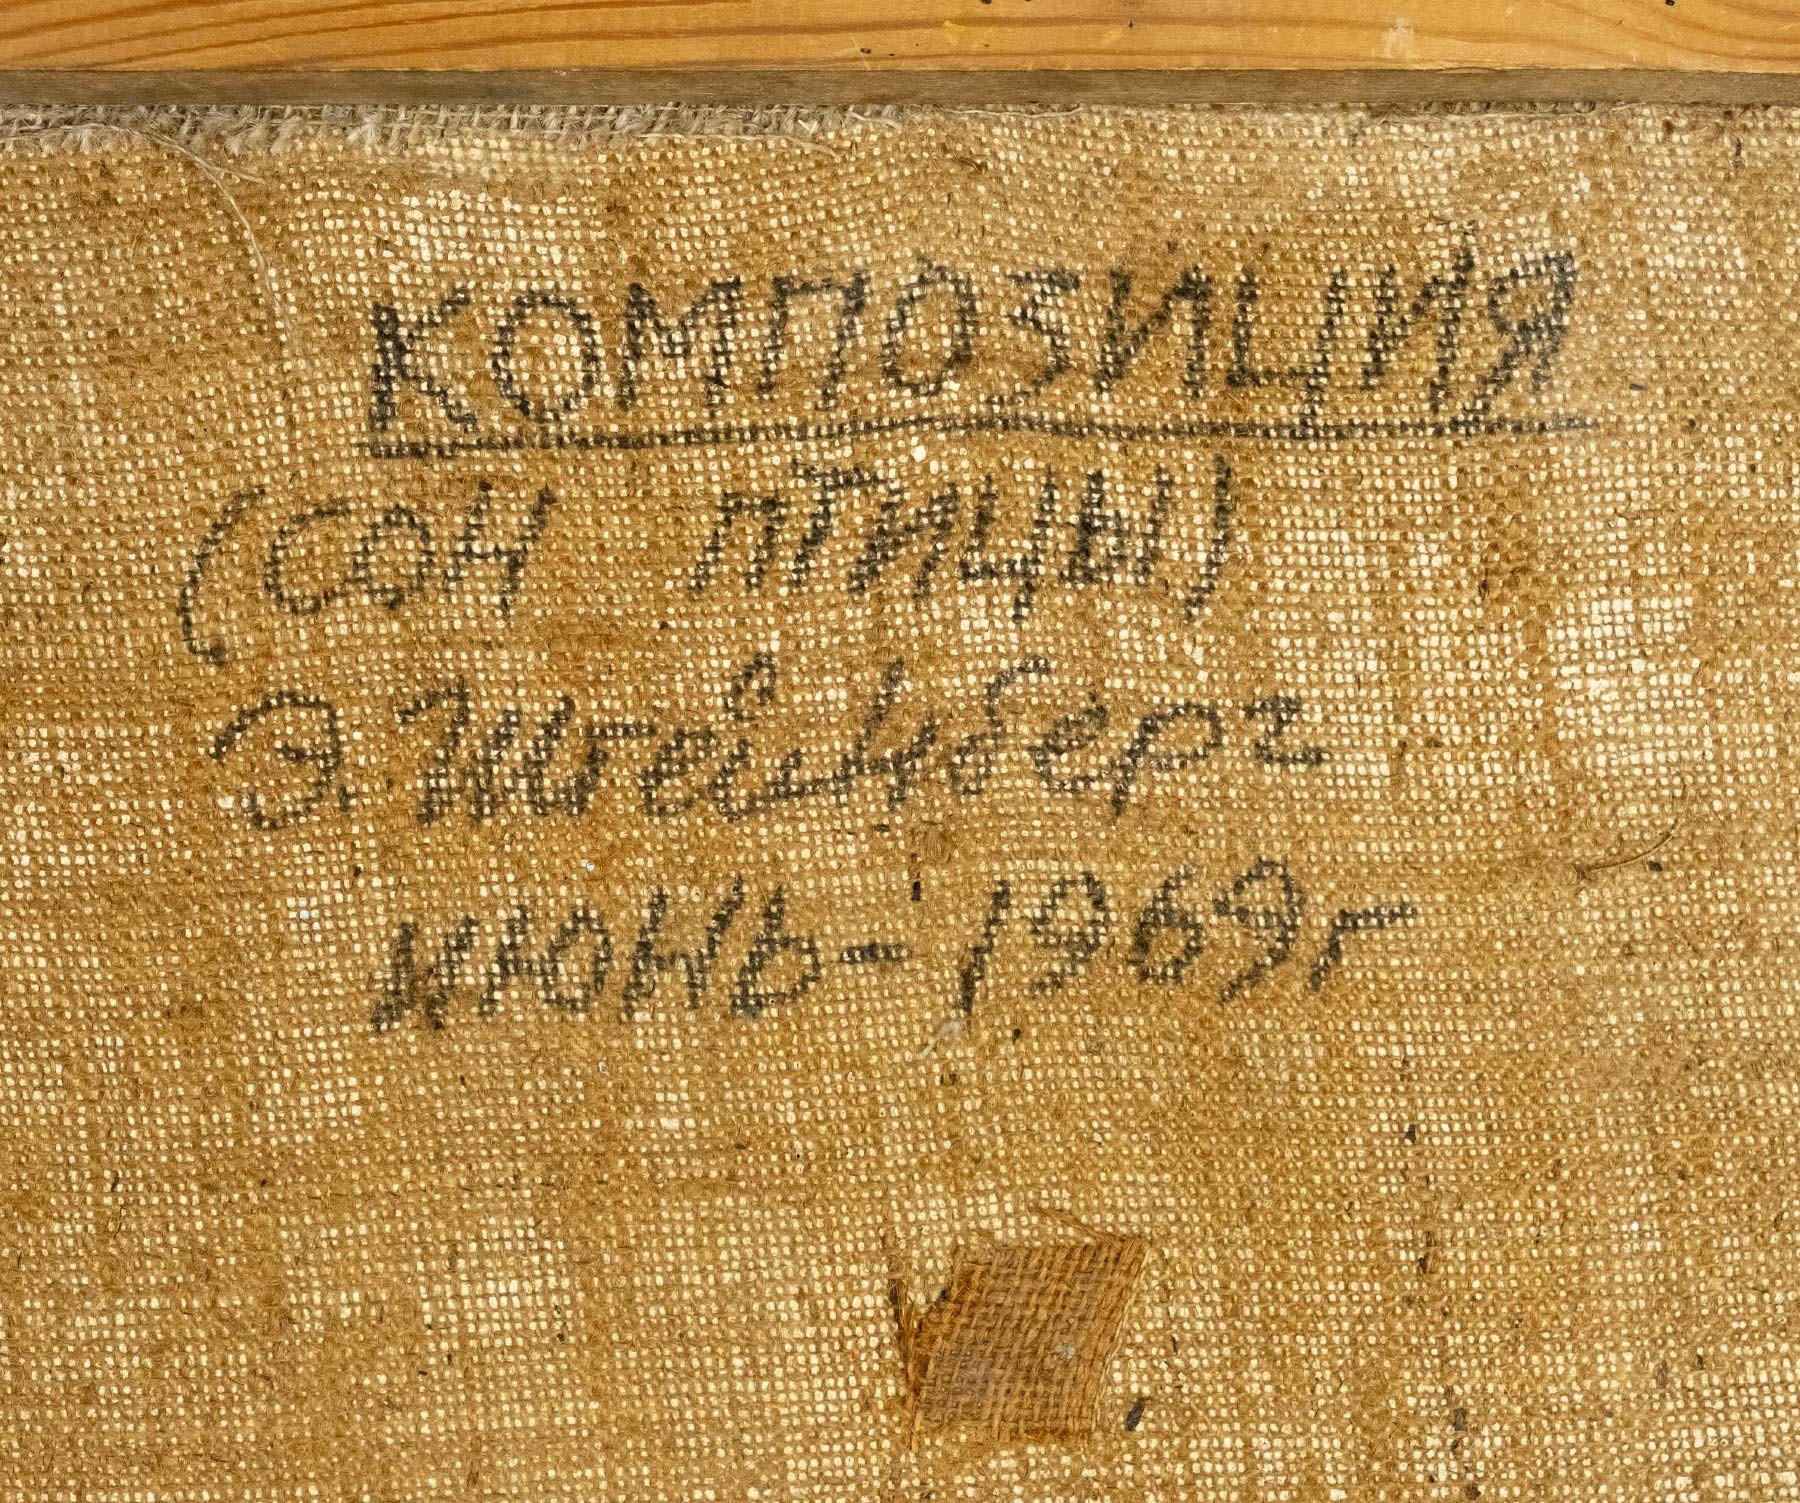 КОМПОЗИЦИЯ
(СОН ПТИЦЫ)
Э. Штейнберг
июнь - 1969г